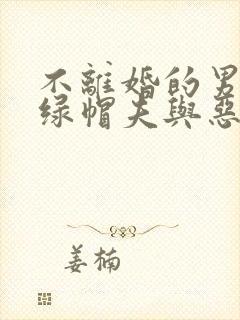 不離婚的男
绿帽夫與惡
姜楠